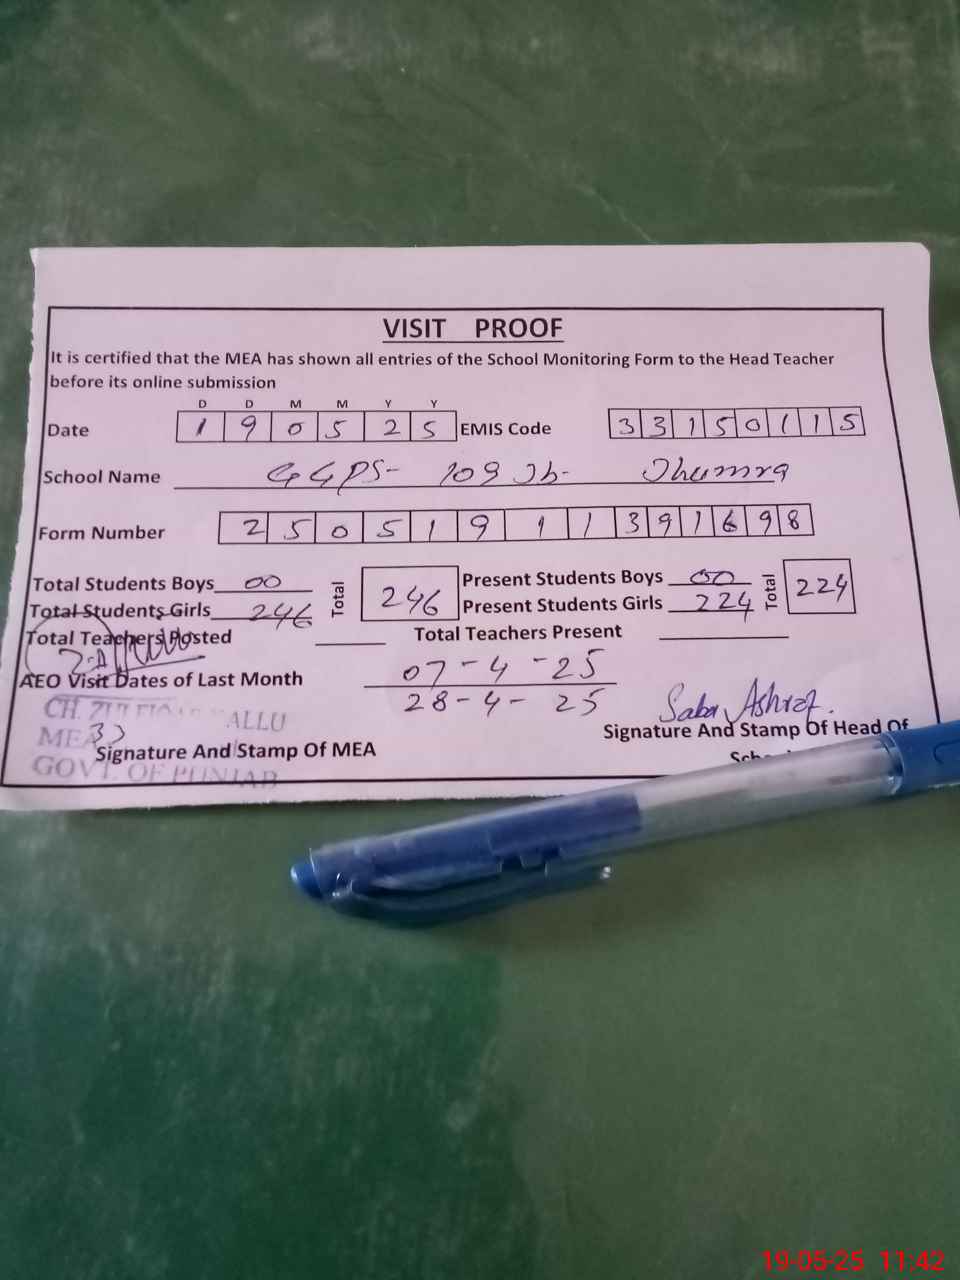 VISIT PROOF
It is certified that the MEA has shown all entries of the School Monitoring Form to the Head Teacher
before its online submission
D D M M Y Y
Date 1 9 0 5 2 5 EMIS Code 3 3 1 5 0 1 1 5
School Name GGPS- 109 Jb- Jhumra
Form Number 2 5 0 5 1 9 1 1 3 9 1 6 9 8
Total Students Boys 00 Total 246 Present Students Boys 00 Total 224
Total Students Girls 246 Present Students Girls 224
Total Teachers Posted Total Teachers Present
AEO Visit Dates of Last Month 07-4-25
28-4-25
CH. ALLU
MEA 33
Signature And Stamp Of MEA
GOVT. OF PUNJAB
Ashraf.
Signature And Stamp Of Head Of
19-05-25 11:42